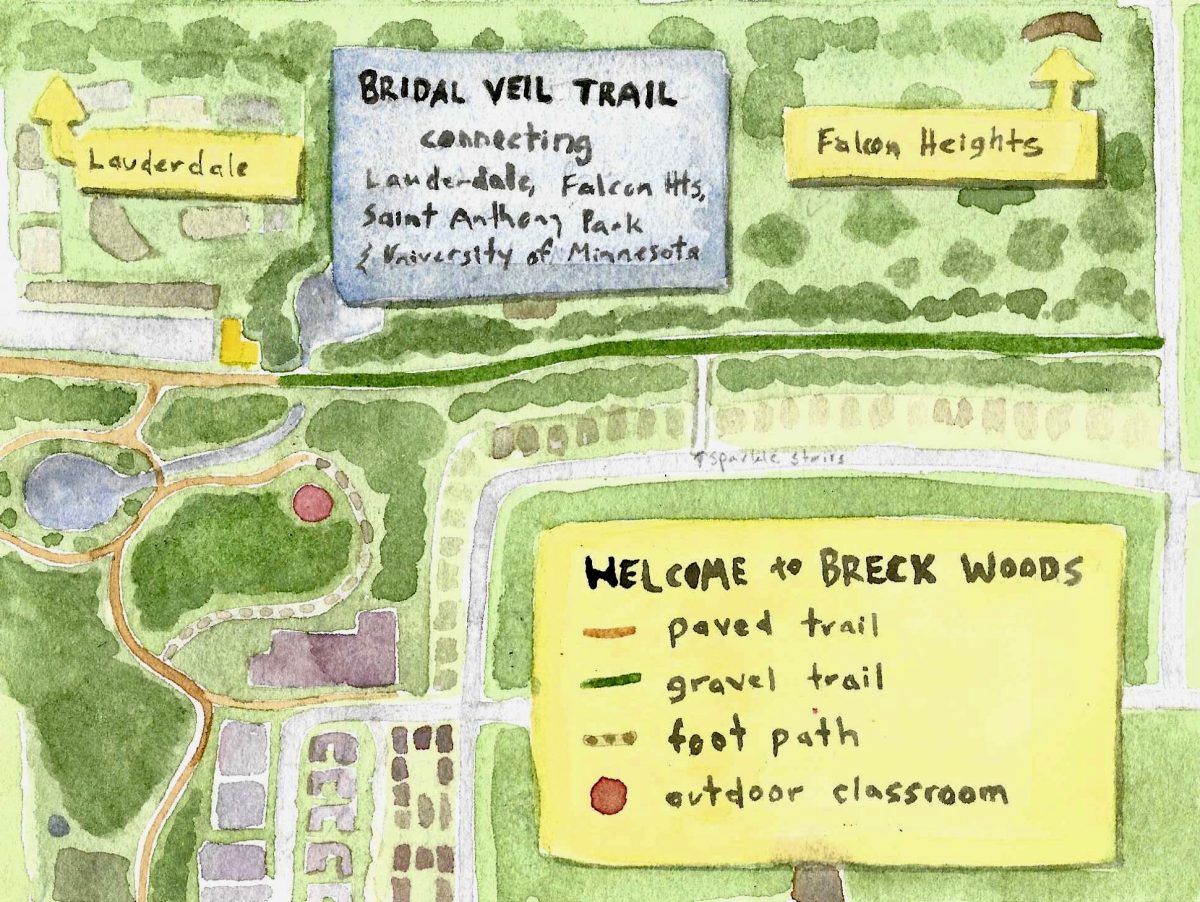 BRIDAL VEIL TRAIL
connecting
Lauderdale, Falcon Hts,
Saint Anthony Park
& University of Minnesota
Lauderdale
Falcon Heights
↑ sparkle stairs
WELCOME to BRECK WOODS
paved trail
gravel trail
foot path
outdoor classroom